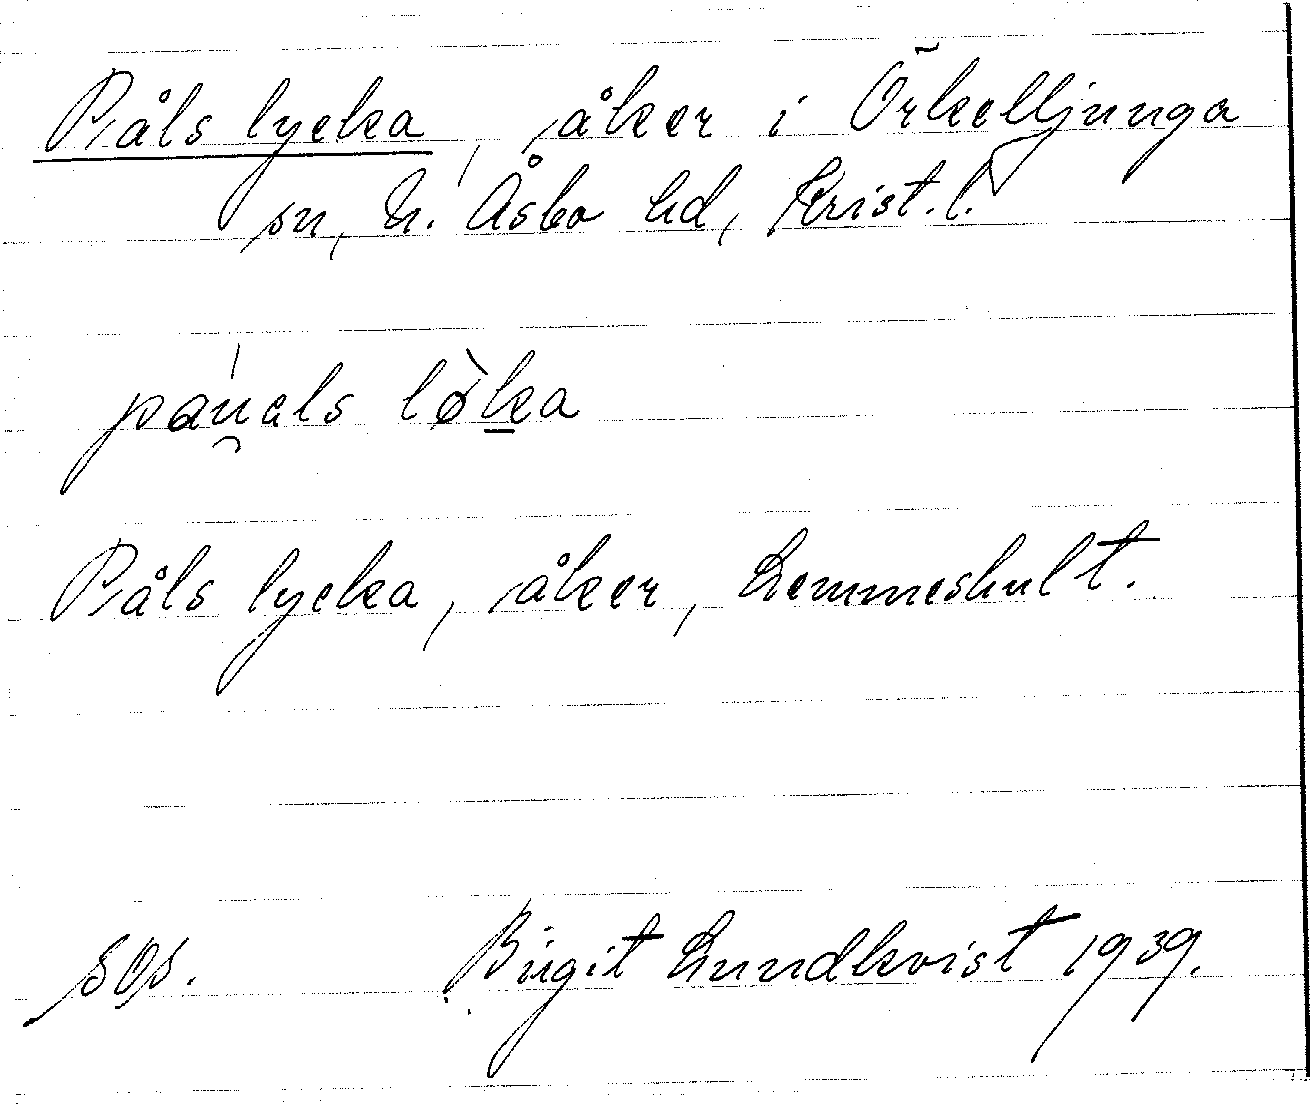 Påls lycka, åker i Örkelljunga
sn, N. Åsbo hd, Krist. l.
páu̯als lø̀ka
Påls lycka, åker, Lemmeshult.
sos. Birgit Lundkvist 1939.